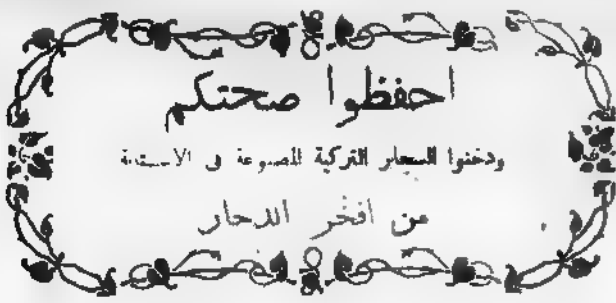 احفظوا صحتكم
ودخنوا السيجاير التركية المصنوعة في الاستانة
من افخر الدخان